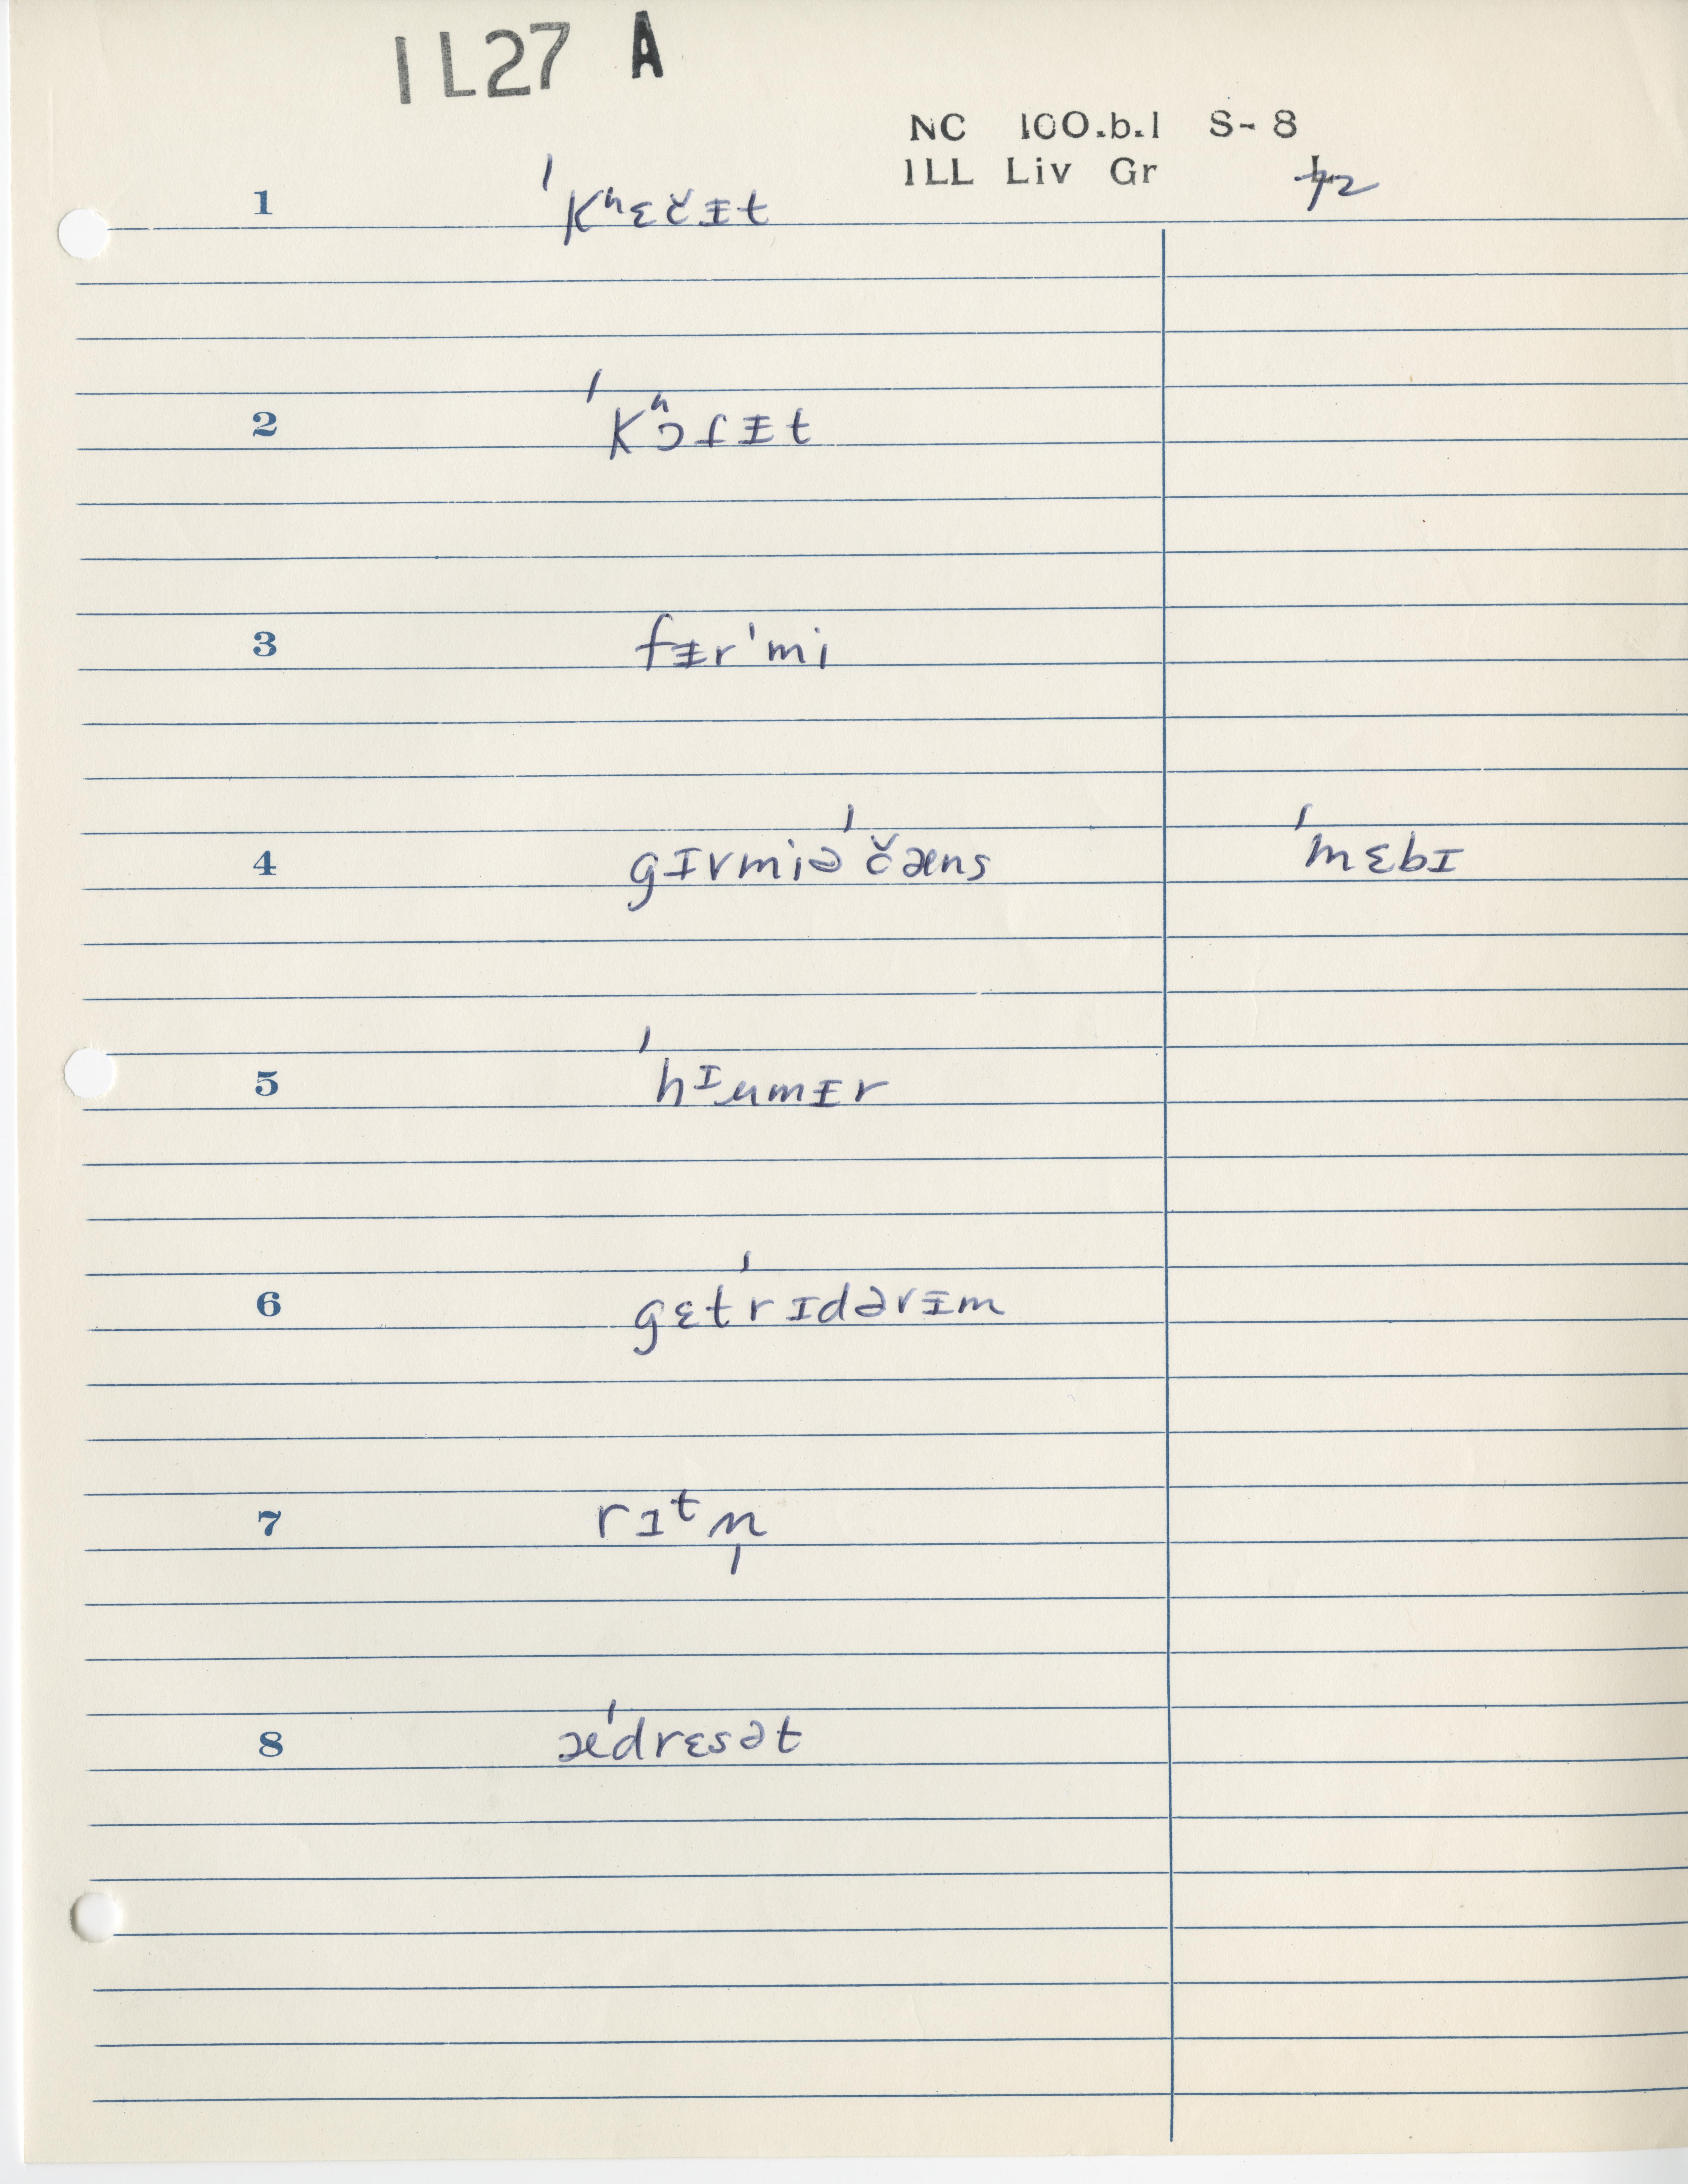 1L27 A
NC 100.b.1 S-8
ILL Liv Gr
1 ˈKʰɛčᵻt
2 ˈKʰɔfᵻt
3 fᵻrˈmi
4 gɪvmiəˈčæns ˈmɛbɪ
5 ˈhᶦumᵻr
6 gɛtˈrɪdəvᵻm
7 rɪᵗn̩
8 æˈdrɛsət